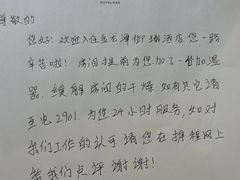 尊敬的
您好：欢迎入住
酒店您一路
辛苦啦！房间提前为您加了一叠加湿
器，缓解房间的干燥，如有其它请
至电2901，为您24小时服务，如对
我们工作的认可请您在携程网上
给我们点评谢谢！